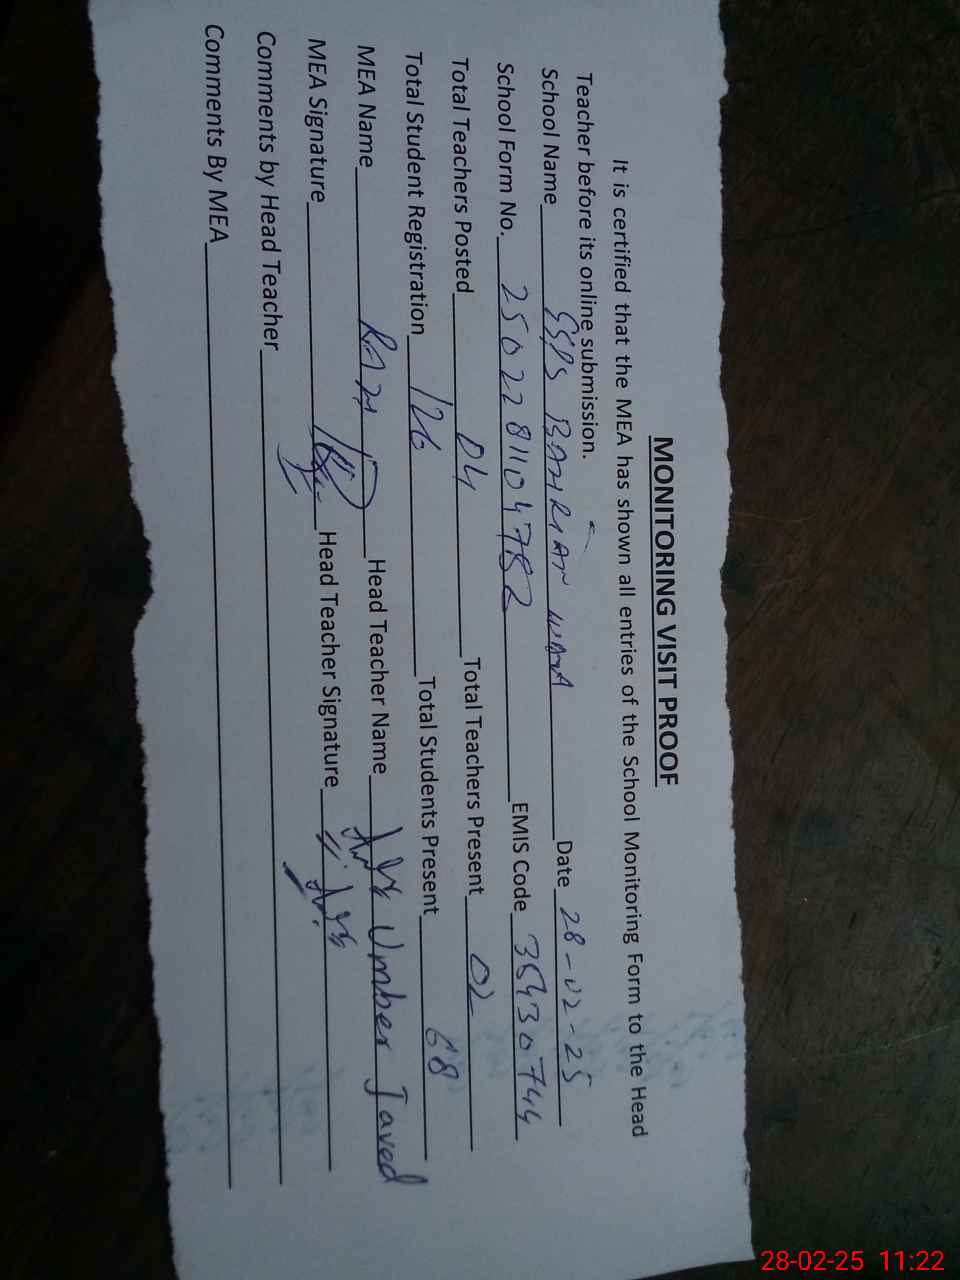 MONITORING VISIT PROOF
It is certified that the MEA has shown all entries of the School Monitoring Form to the Head
Teacher before its online submission.
School Name Date 28-02-25
School Form No. 2502281104782 EMIS Code 35430744
Total Teachers Posted 04 Total Teachers Present 02
Total Student Registration 126 Total Students Present 68
MEA Name Head Teacher Name Umber Javed
MEA Signature Head Teacher Signature
Comments by Head Teacher
Comments By MEA
28-02-25 11:22